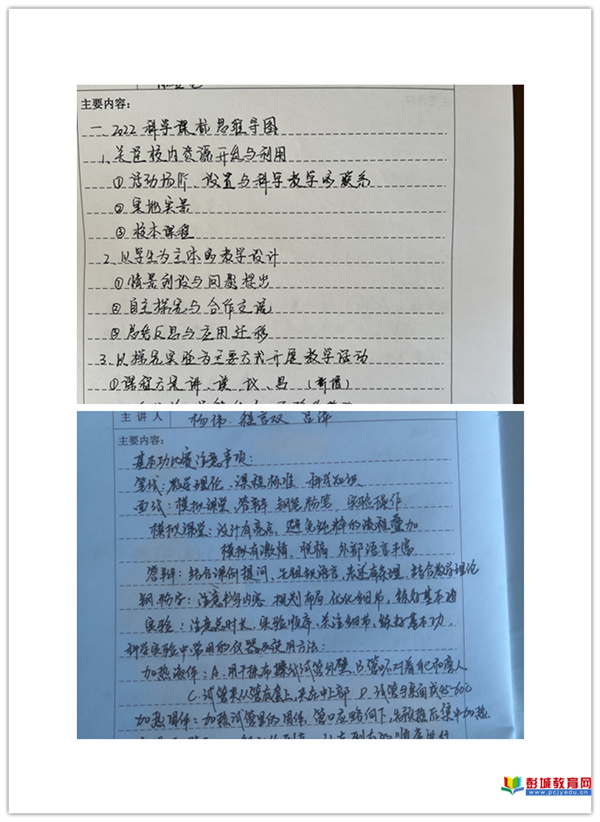 主要内容：
一、2022科学课标思维导图
1、关注校内资源开发与利用
①活动场所、设置与科学教学的联系
②实地实景
③校本课程
2、以学生为主体的教学设计
①情景创设与问题提出
②自主探究与合作交流
③总结反思与应用迁移
3、以探究实验为主要方式开展教学活动
①课程方案讲、读、议、
主讲人 杨伟
主要内容：
基本功比赛注意事项：
笔试：教学理论、课程标准、科学知识
面试：模拟课堂、答辩、钢笔粉笔、实验操作
模拟课堂：设计有亮点，避免纯粹的流程叠加
模拟有激情，
外部语言丰富
答辩：结合课例提问，先组织语言，表述有条理，结合教学理论
钢粉字：注意书写内容，规划布局，优化细节，练好基本功
实验：注意总时长，实验顺序，关注细节，练好基本功。
科学实验中常用的仪器及使用方法：
加热液体：A.用于
试管外壁 B.管口不对着自己和旁人
C.试管夹从管底套上，夹在中上部 D.试管与桌面成45-60℃
加热固体：加热试管里的固体，管口应略向下，先预热后集中加热.
彭城教育网
www.pcjyedu.cn